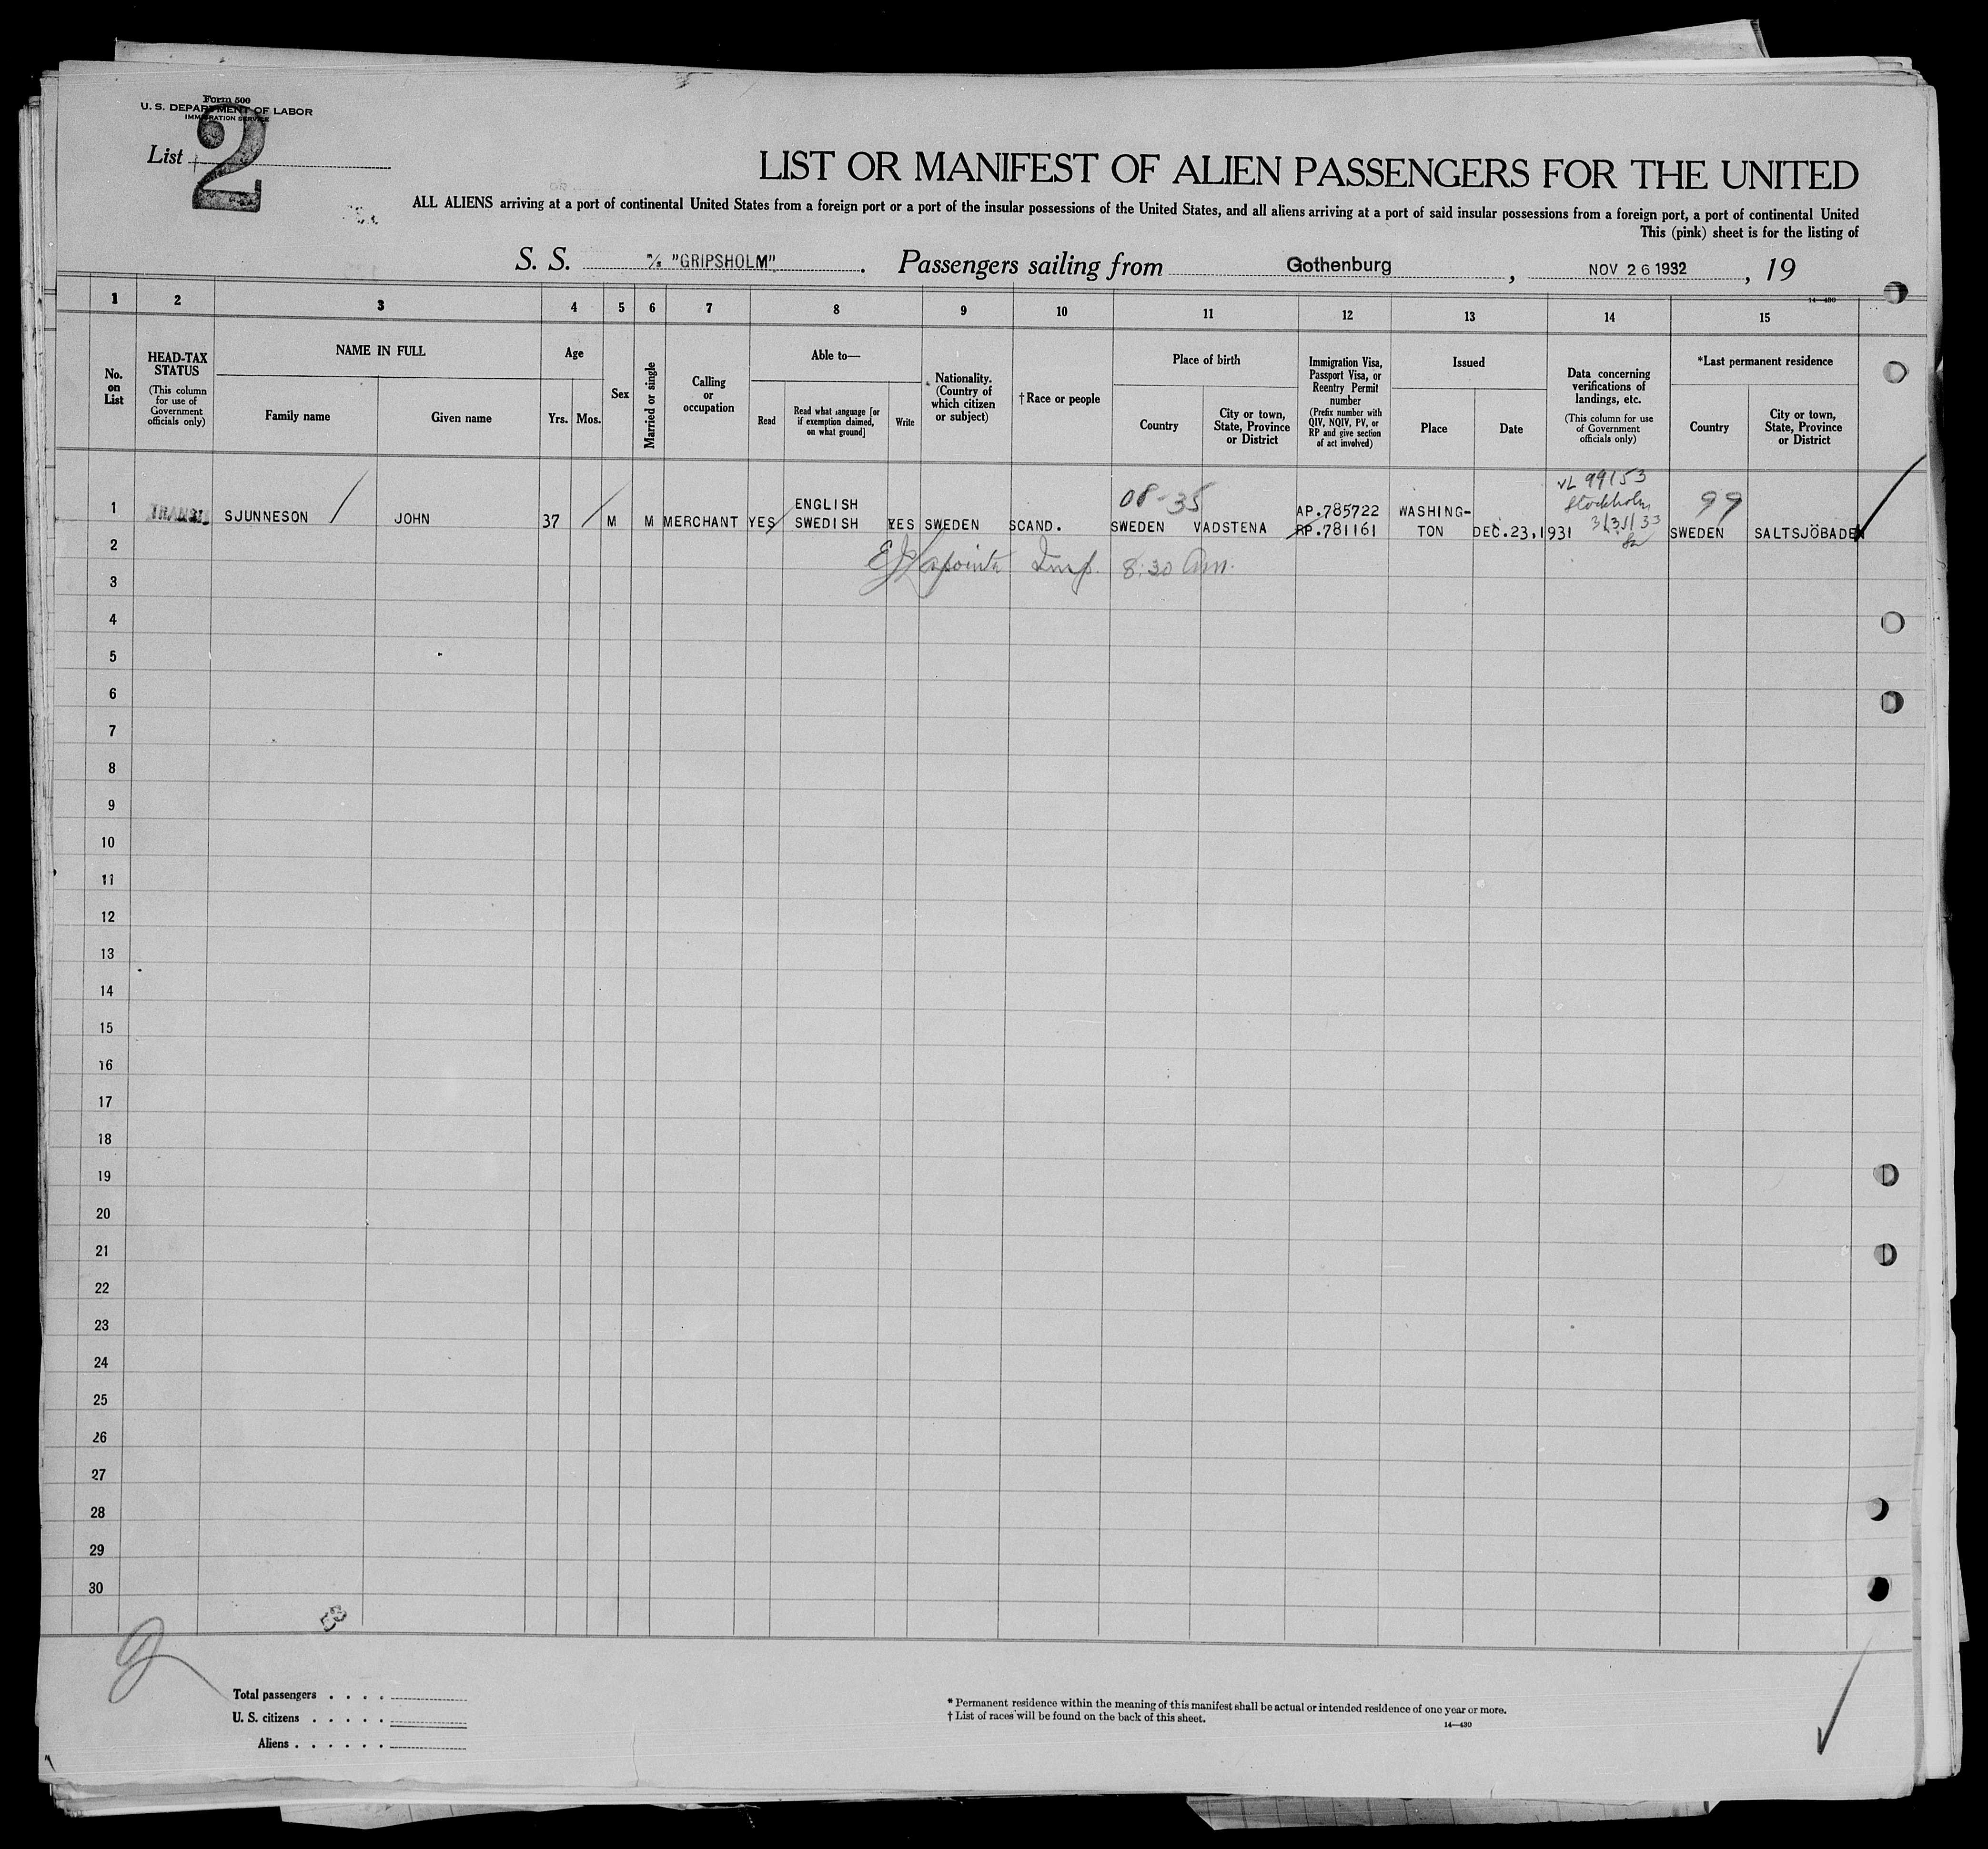 Form 500
U. S. DEPARTMENT OF LABOR
IMMIGRATION SERVICE
List 2
LIST OR MANIFEST OF ALIEN PASSENGERS FOR THE UNITED
ALL ALIENS arriving at a port of continental United States from a foreign port or a port of the insular possessions of the United States, and all aliens arriving at a port of said insular possessions from a foreign port, a port of continental United
This (pink) sheet is for the listing of
S. S. M/S "GRIPSHOLM". Passengers sailing from Gothenburg, NOV 26 1932, 19
14—430
1 2 3 4 5 6 7 8 9 10 11 12 13 14 15
No. on List
HEAD-TAX STATUS
(This column for use of Government officials only)
NAME IN FULL
Family name
Given name
Age
Yrs.
Mos.
Sex
Married or single
Calling or occupation
Able to—
Read
Read what language [or if exemption claimed, on what ground]
Write
Nationality. (Country of which citizen or subject)
†Race or people
Place of birth
Country
City or town, State, Province or District
Immigration Visa, Passport Visa, or Reentry Permit number
(Prefix number with QIV, NQIV, PV, or RP and give section of act involved)
Issued
Place
Date
Data concerning verifications of landings, etc.
(This column for use of Government officials only)
*Last permanent residence
Country
City or town, State, Province or District
VL 99153
Stockholm
3/31/33
08-35
99
ENGLISH
AP.785722 WASHING-
1 TRANSIT SJUNNESON JOHN 37 M M MERCHANT YES SWEDISH YES SWEDEN SCAND. SWEDEN VADSTENA RP.781161 TON DEC.23,1931 SWEDEN SALTSJÖBADEN
2
E J Lapointe Insp. 8:30 Am.
3
4
5
6
7
8
9
10
11
12
13
14
15
16
17
18
19
20
21
22
23
24
25
26
27
28
29
30
2
Total passengers . . . .
U. S. citizens . . . . .
Aliens . . . . . .
* Permanent residence within the meaning of this manifest shall be actual or intended residence of one year or more.
† List of races will be found on the back of this sheet.
14—430